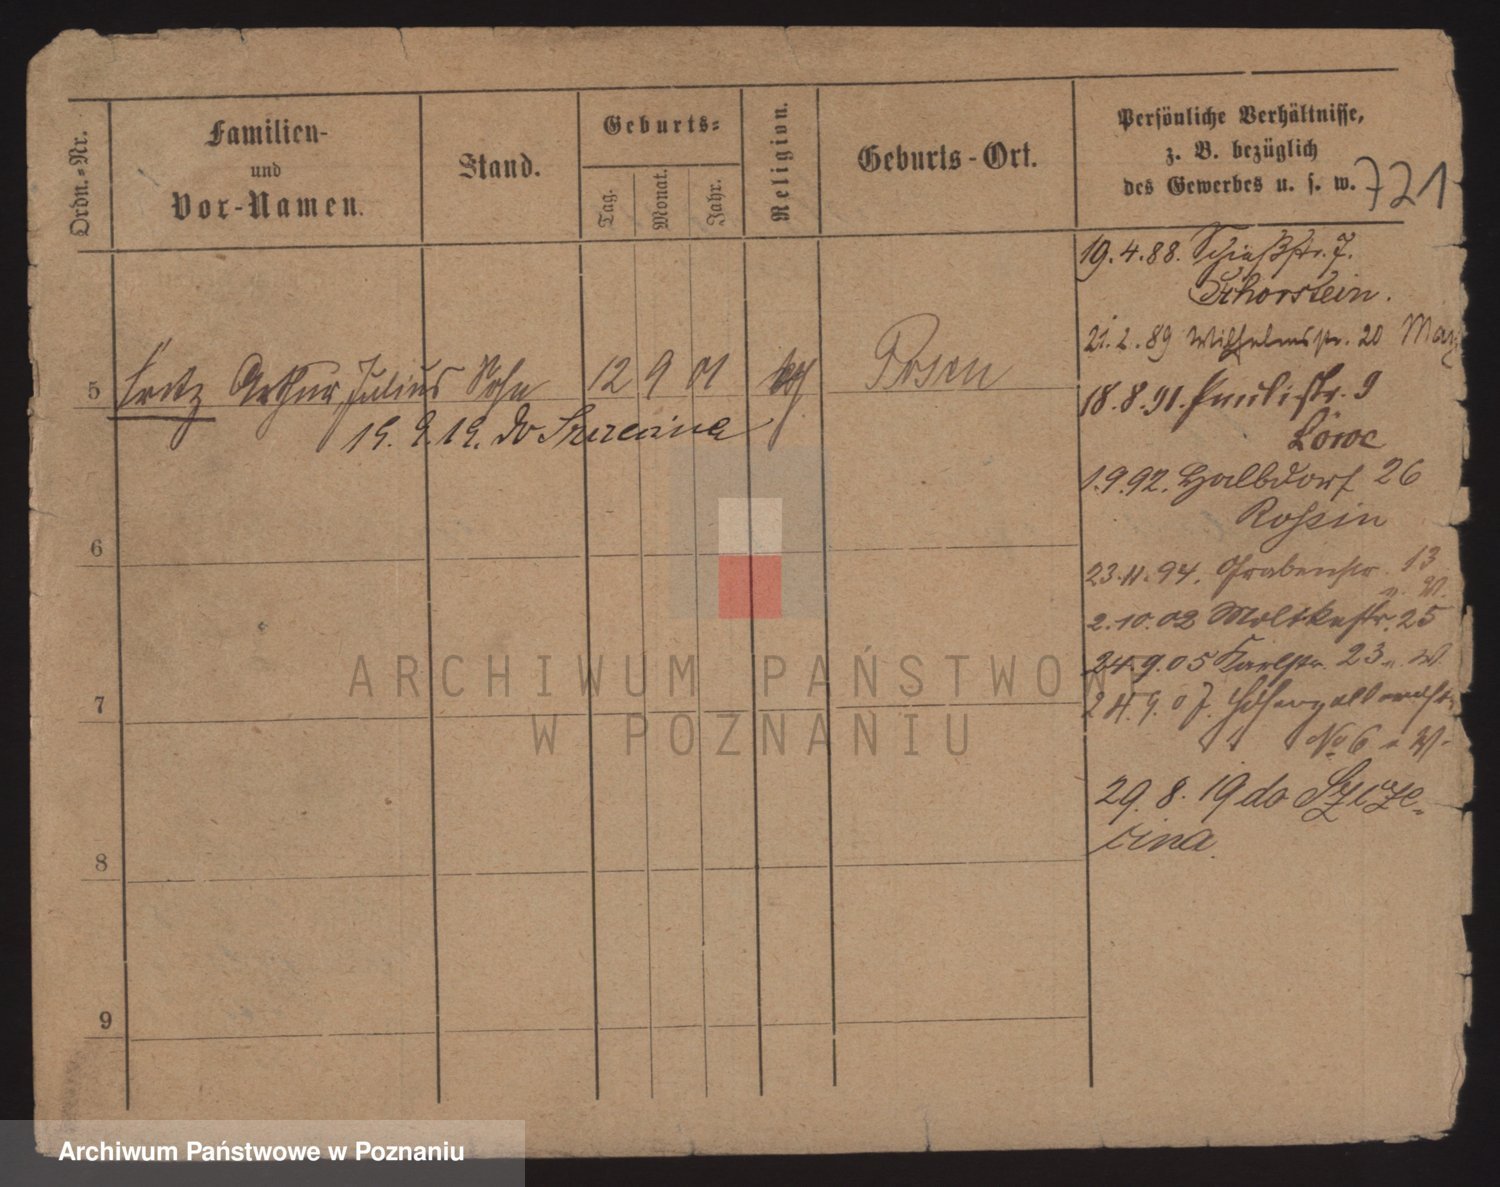 Ordn.-Nr.
Familien-
und
Vor-Namen.
Stand.
Geburts-
Tag.
Monat.
Jahr.
Religion.
Geburts-Ort.
Persönliche Verhältnisse,
z. B. bezüglich
des Gewerbes u. s. w.
721
19.4.88. Schießstr. 7.
Schorstein.
21.2.89 Wilhelmstr. 20
18.8.91. Paulistr. 9
Löwe
1.9.92. Halbdorf 26
23.11.94. Grabenstr. 13
2.10.02 Moltkestr. 25
24.9.05 Karlstr. 23 n. W.
24.9.07.
No 6 n W.
29.8.19 do Szcze-
cina.
5 Fritz Arthur Julius Sohn 12 9 01 Posen
19.9.19. do Szczecina
6
7
8
9
ARCHIWUM PAŃSTWOWE
W POZNANIU
Archiwum Państwowe w Poznaniu